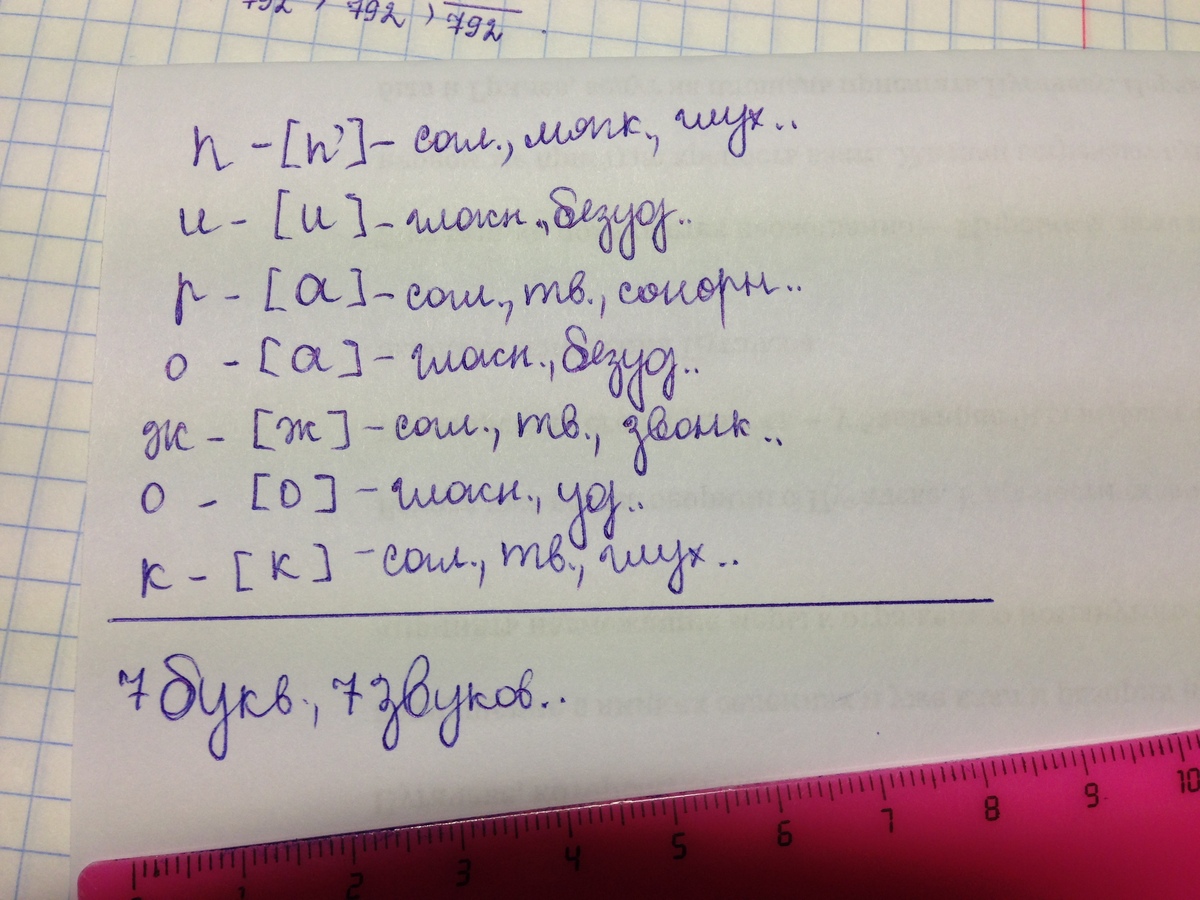 792, 792, 792.
п - [п'] - согл., мягк., глух..
и - [и] - гласн., безуд..
р - [а] - согл., тв., сонорн..
о - [а] - гласн., безуд..
ж - [ж] - согл., тв., звонк..
о - [о] - гласн., уд..
к - [к] - согл., тв., глух..
7 букв., 7 звуков..
1 2 3 4 5 6 7 8 9 10